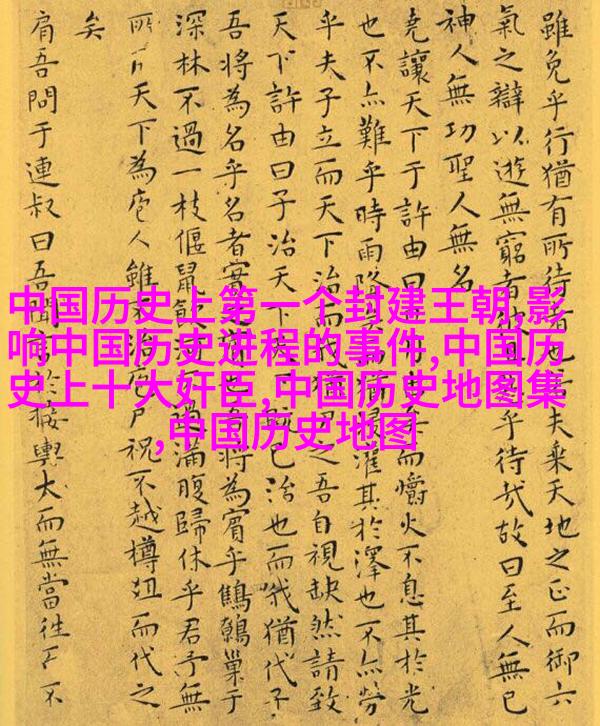 中国历史上第一个封建王朝,影
响中国历史进程的事件,中国历
史上十大奸臣,中国历史地图集
,中国历史地图
雖免乎行猶有所待者也夫乘天地之正而御六
氣之辯以遊無窮者彼乎待哉故曰至人無己
神人無功聖人無名
堯讓天下于許由曰而爝火不息其於光
也不亦難乎時雨降浸灌其於澤也不亦勞
乎夫子立而天下治而我猶之吾自視缺然請致
天下許由曰子治天下已治也而我猶代子
吾將為名乎名者實也將為賓乎鷦鷯巢于
深林不過一枝偃鼠飲滿腹歸休乎君予無
所天下為庖人雖不治庖尸祝不越樽俎而代之
矣
肩吾問于連叔曰吾聞於接輿大而無當往而不